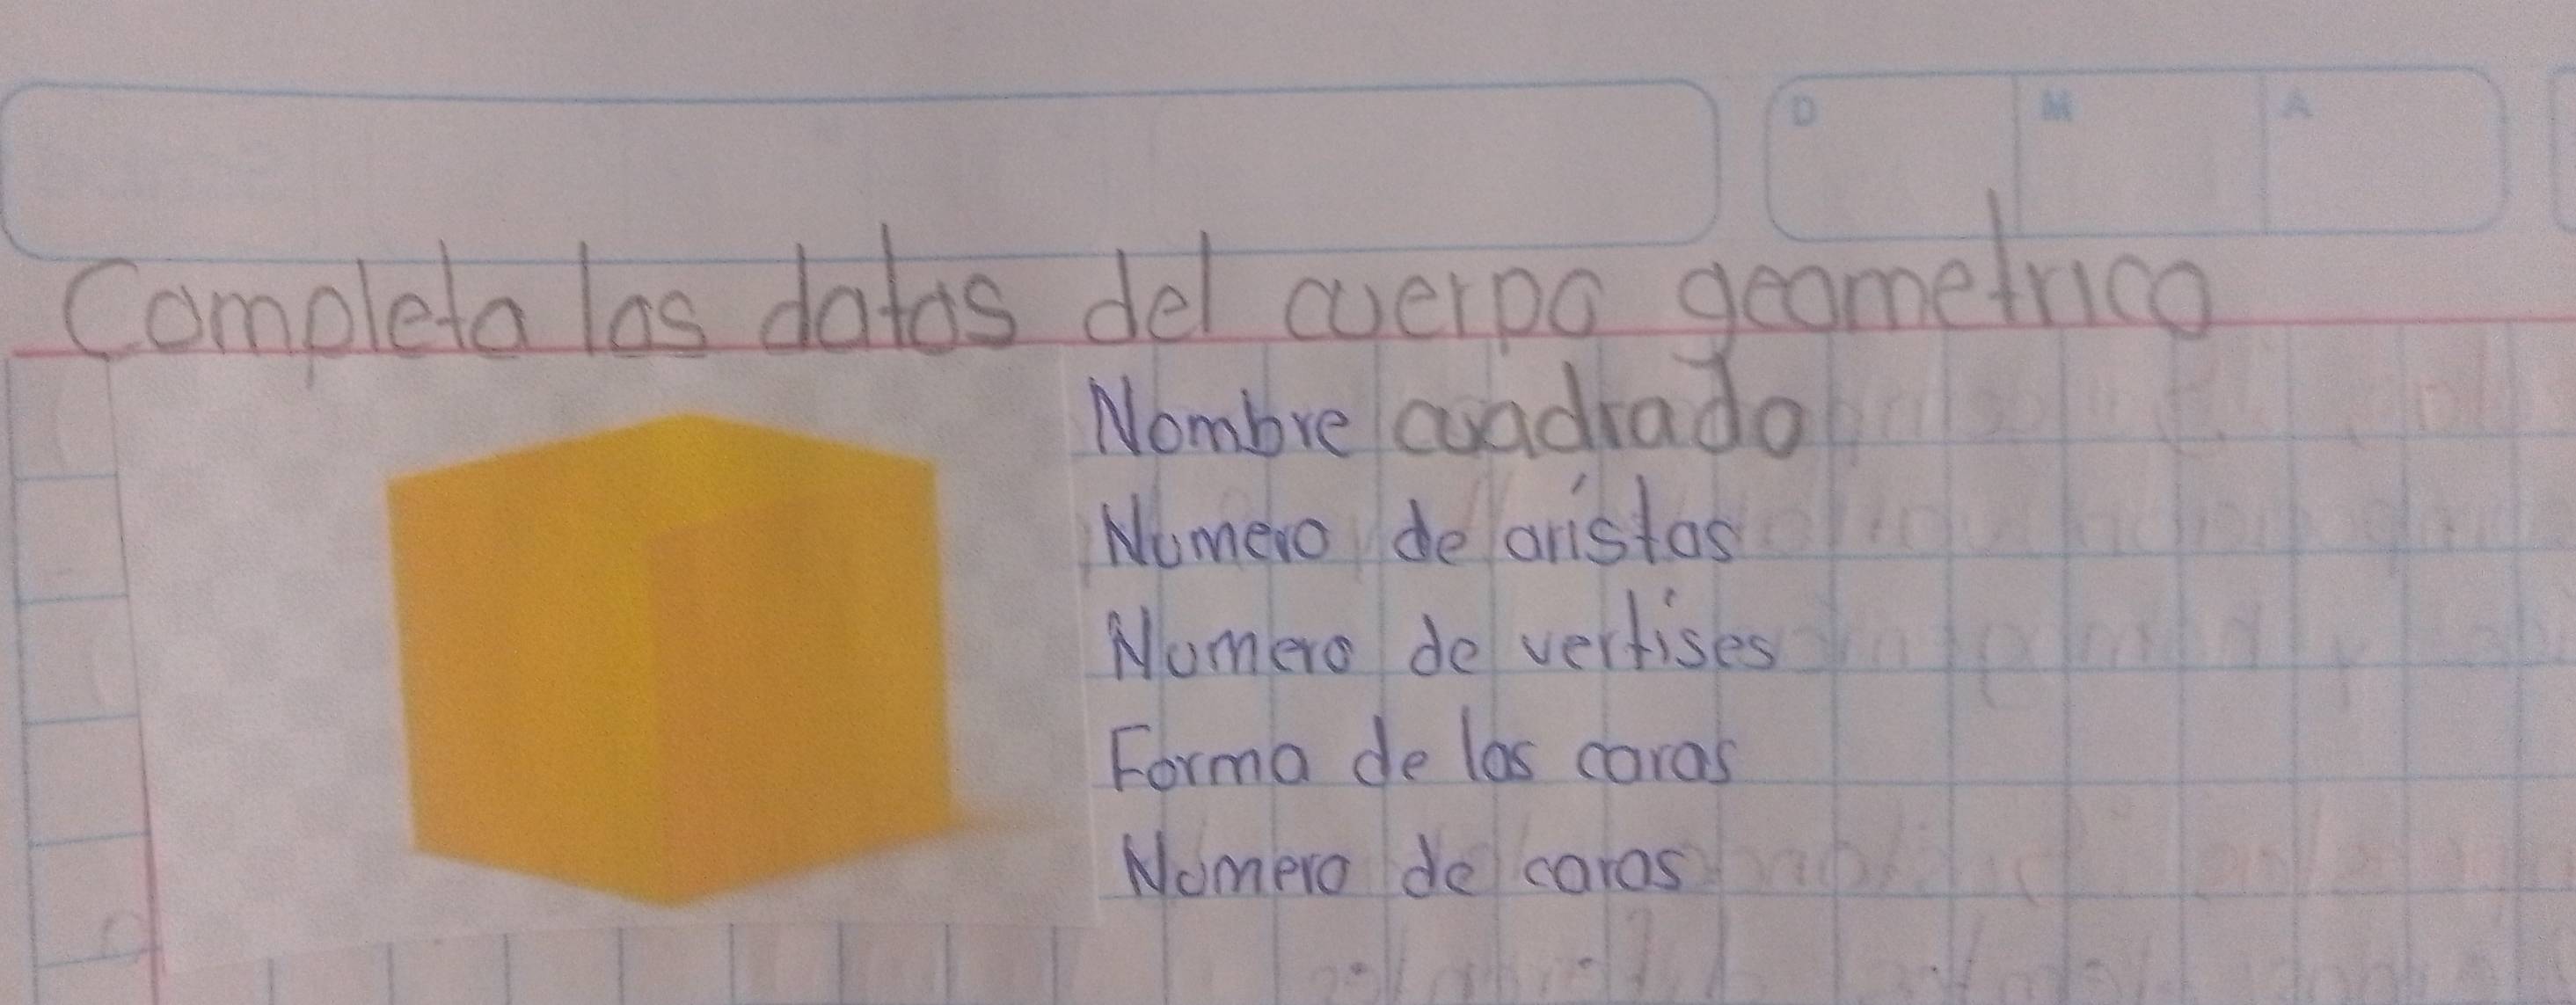 D M A
Completa los datos del cuerpo geometrico
Nombre cuadrado
Numero de arístas
Numero de vertises
Forma de las caras
Numero de caras